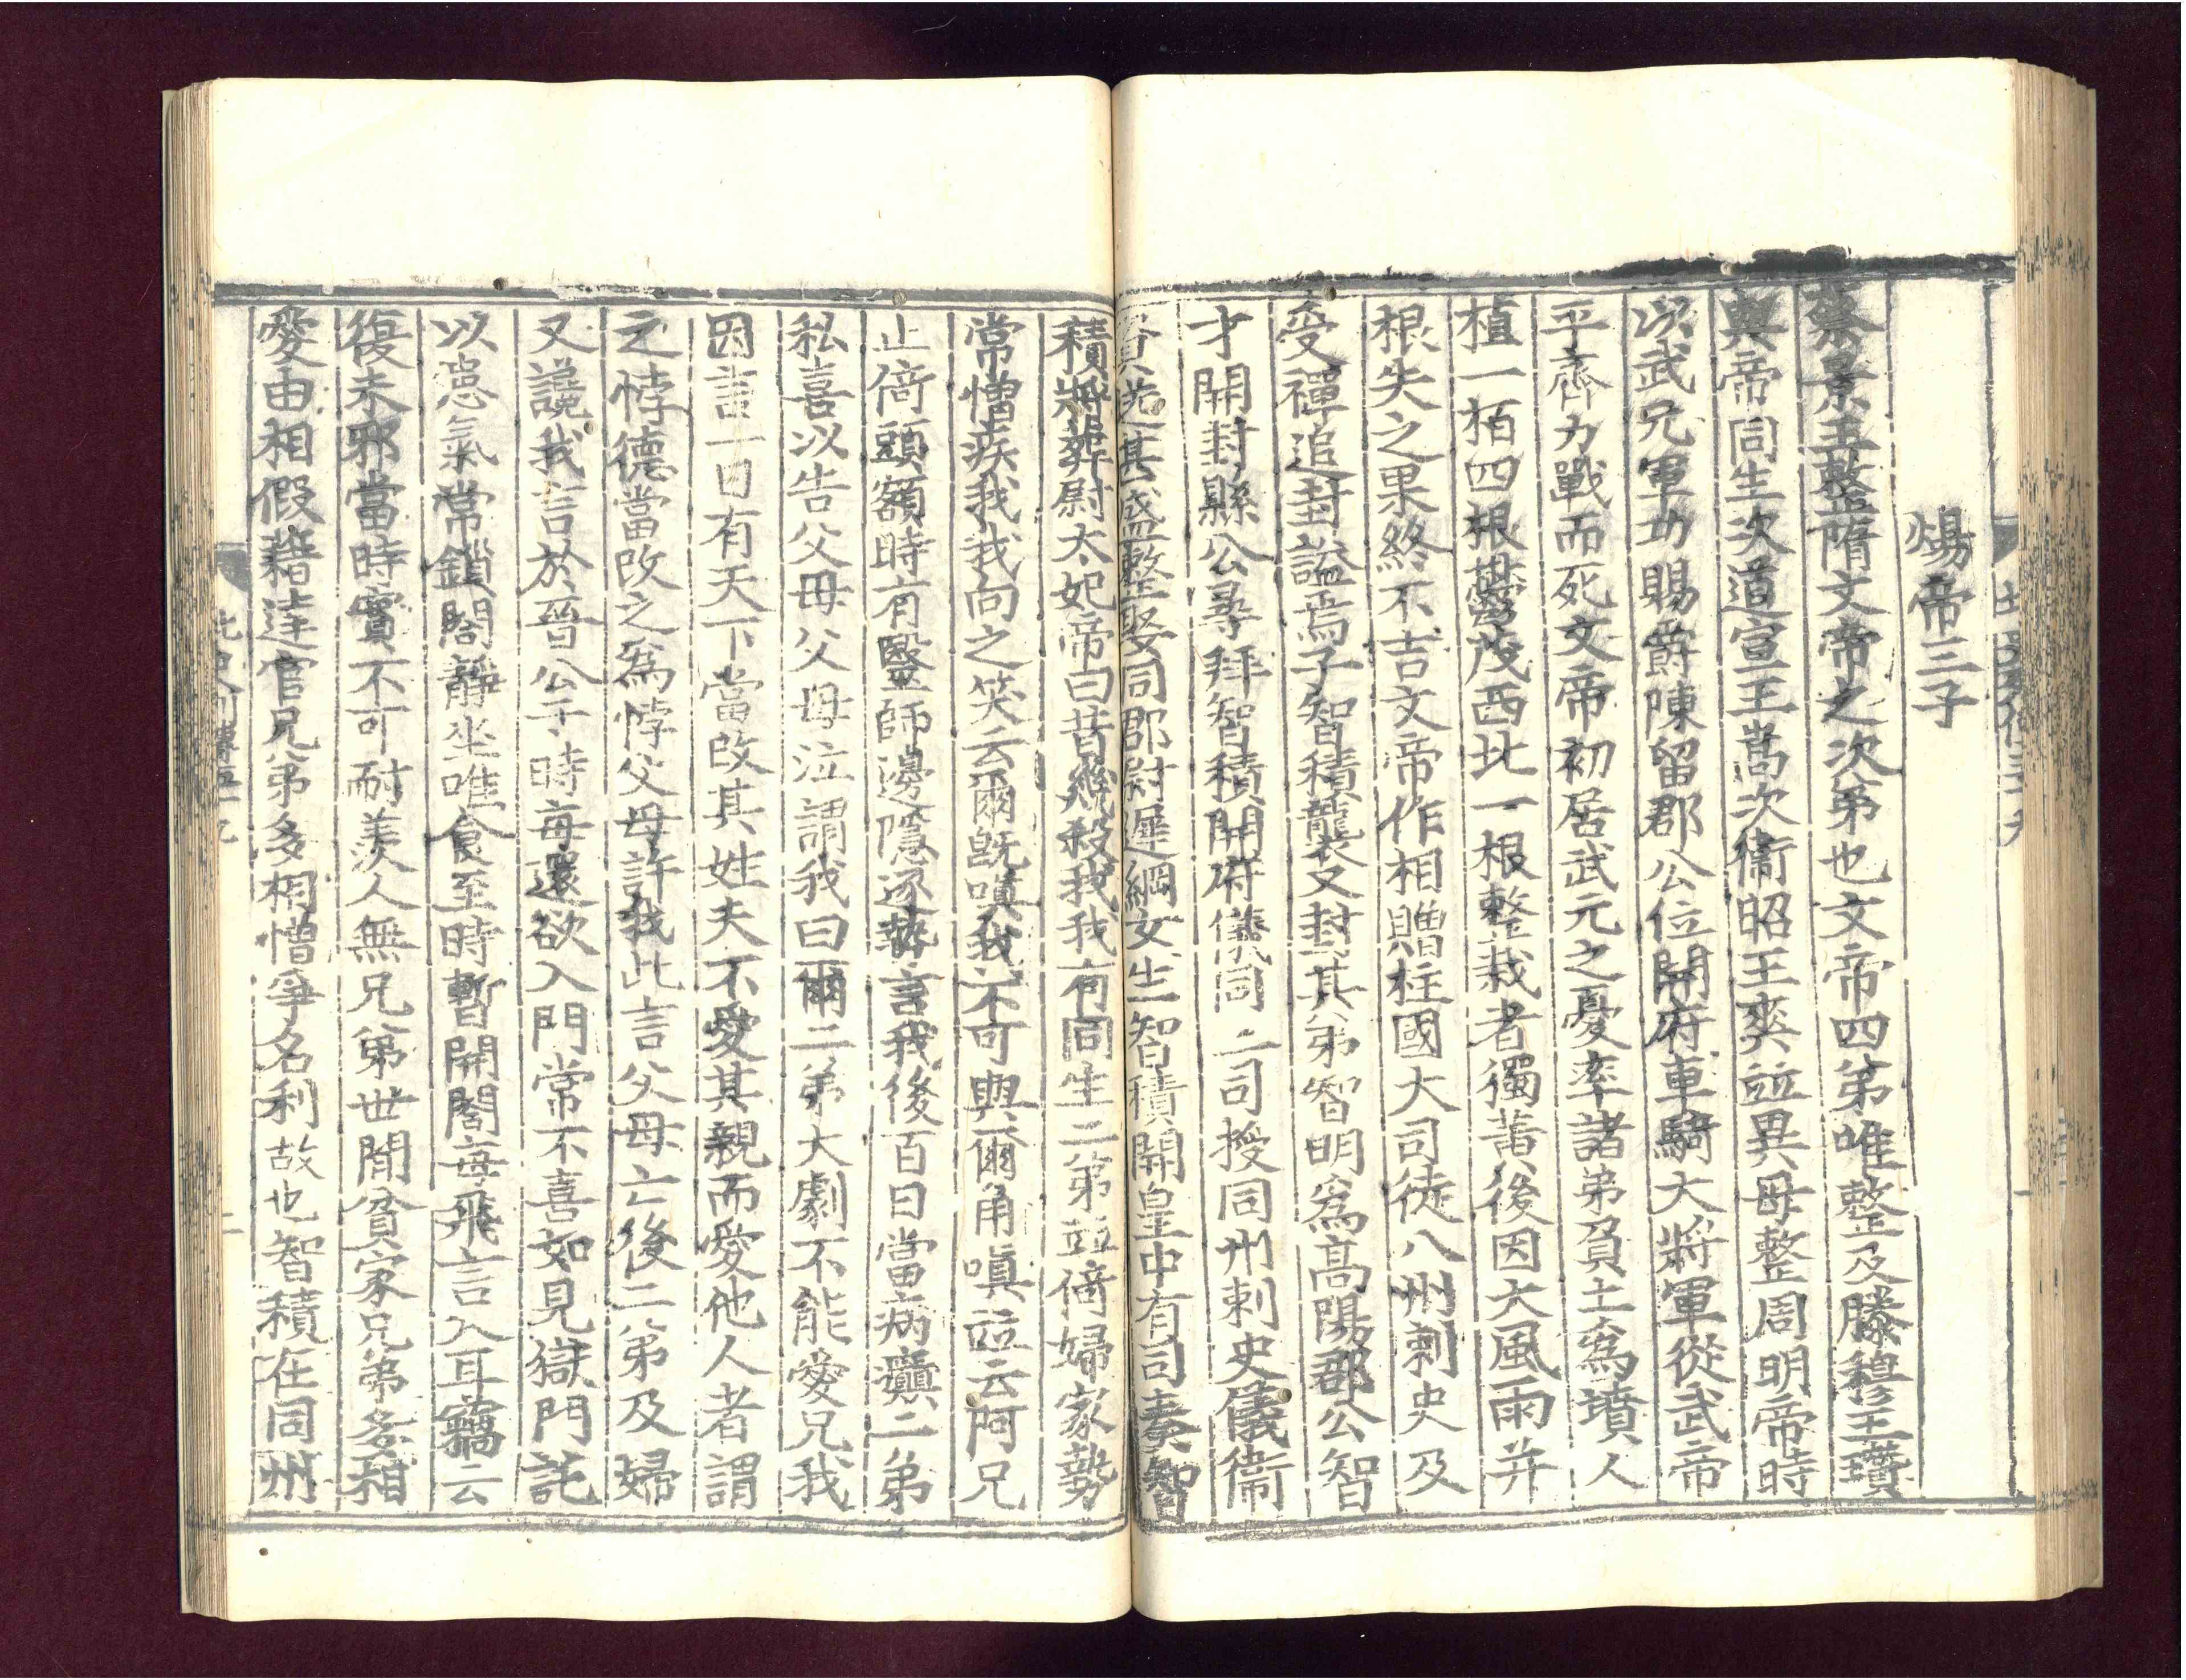 煬帝三子
蔡景王整隋文帝之次弟也文帝四弟唯整及滕穆王瓚
與帝同生次道宣王嵩次衞昭王爽並異母整周明帝時
以武元軍功賜爵陳留郡公位開府車騎大將軍從武帝
平齊力戰而死文帝初居武元之憂率諸弟負土爲墳人
植一栢四根鬱茂西北一根整栽者獨黃後因大風雨并
根失之果終不吉文帝作相贈柱國大司徒八州刺史及
受禪追封謚焉子智積襲又封其弟智明爲高陽郡公智
才開封縣公尋拜智積開府儀同三司授同州刺史儀衞
資送甚盛整娶同郡尉遲綱女生智積開皇中有司奏智
積將葬尉太妃帝曰昔幾殺我我有同生二弟並倚婦家勢
常憎疾我我向之笑云爾旣嗔我不可與爾角嗔並云阿兄
止倚頭額時有醫師邊隱逐勢言我後百日當病癲二弟
私喜以告父母父母泣謂我曰爾二弟大劇不能愛兄我
因言一日有天下當改其姓夫不愛其親而愛他人者謂
之悖德當改之爲悖父母許我此言父母亡後二弟及婦
又讒我言於晉公于時每還欲入門常不喜如見獄門託
以患氣常鎖閤靜坐唯食至時暫開閤每飛言入耳竊云
復未邪當時實不可耐羨人無兄弟世閒貧家兄弟多相
愛由相假藉達官兄弟多相憎爭名利故也智積在同州
北史列傳五十九
二